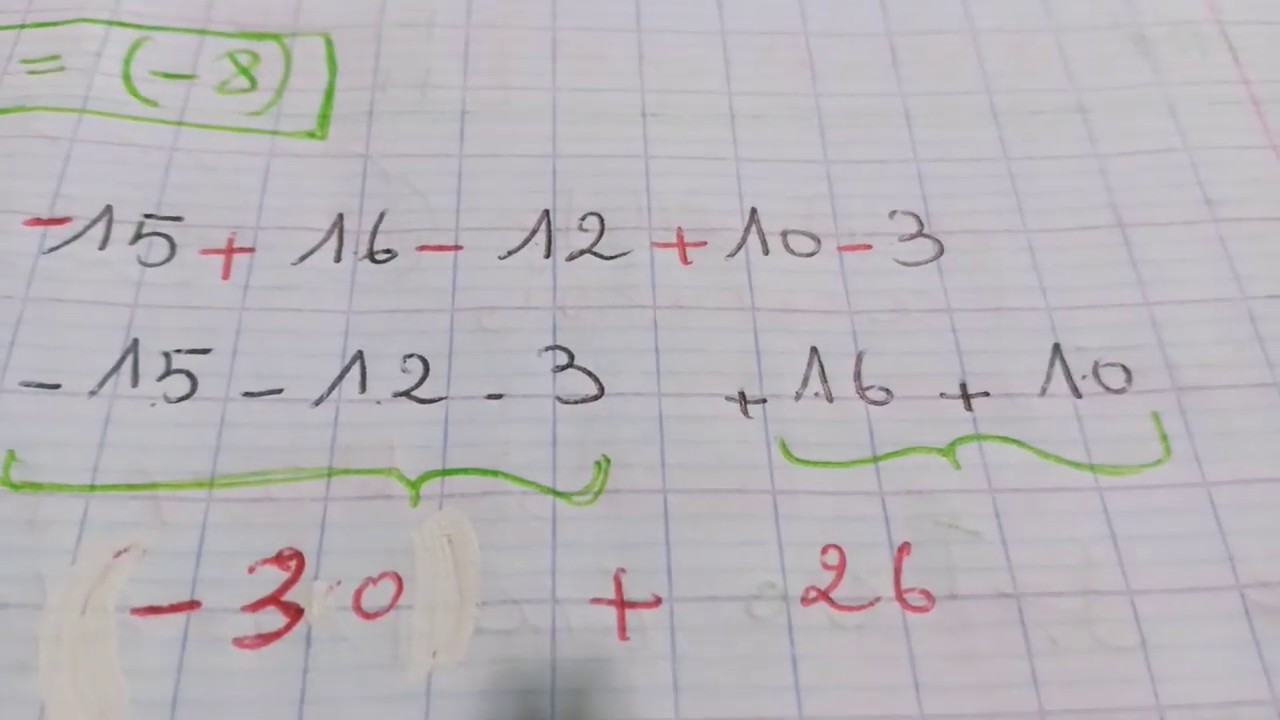 = (-8)
-15 + 16 - 12 + 10 - 3
- 15 - 12 - 3 + 16 + 10
- 30 + 26